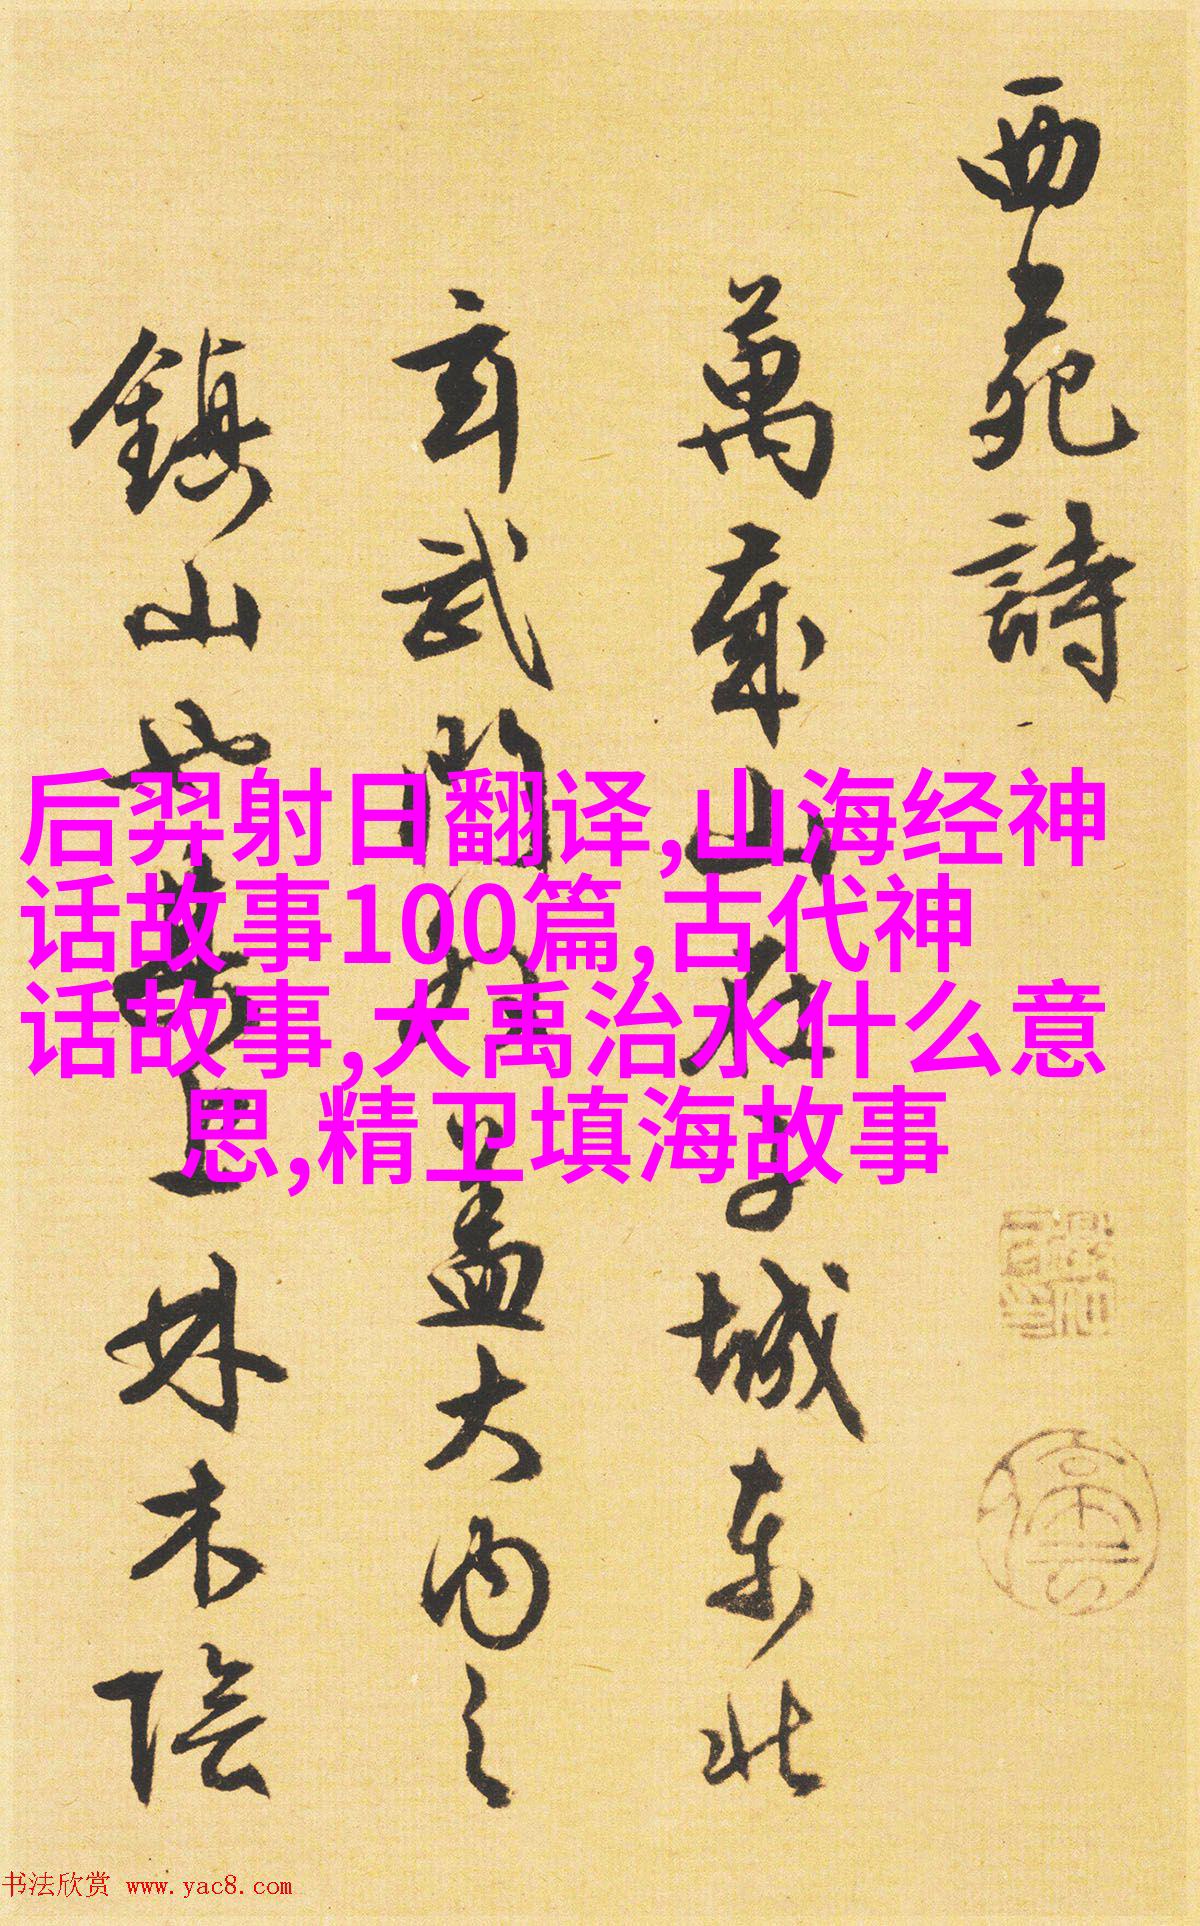 西苑詩
萬歲山在子城東北
玄武門外蓋大內之
鎮山也上林木陰
后羿射日翻译,山海经神
话故事100篇,古代神
话故事,大禹治水什么意
思,精卫填海故事
书法欣赏 www.yac8.com